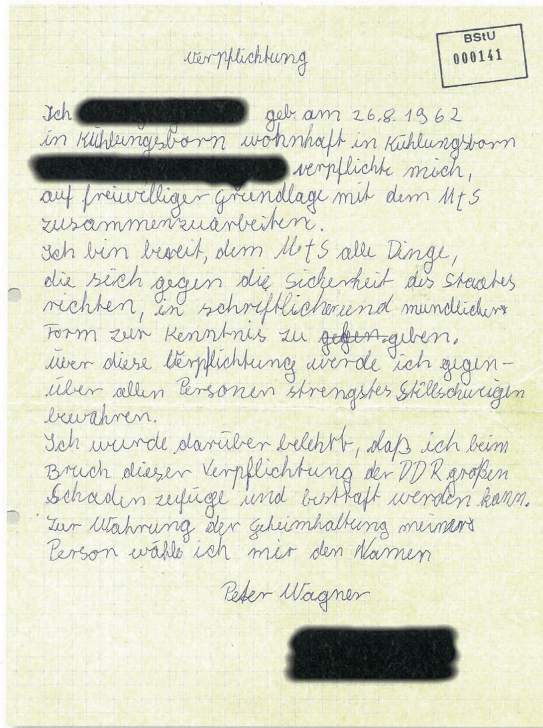 BStU
000141
Verpflichtung
Ich geb. am 26.8.1962
in Kühlungsborn wohnhaft in Kühlungsborn
verpflichte mich,
auf freiwilliger Grundlage mit dem MfS
zusammenzuarbeiten.
Ich bin bereit, dem MfS alle Dinge,
die sich gegen die Sicherheit des Staates
richten, in schriftlicher und mündlicher
Form zur Kenntnis zu gegen geben.
Über diese Verpflichtung werde ich gegen-
über allen Personen strengstes Stillschweigen
bewahren.
Ich wurde darüber belehrt, daß ich beim
Bruch dieser Verpflichtung der DDR großen
Schaden zufüge und bestraft werden kann.
Zur Wahrung der Geheimhaltung meiner
Person wähle ich mir den Namen
Peter Wagner